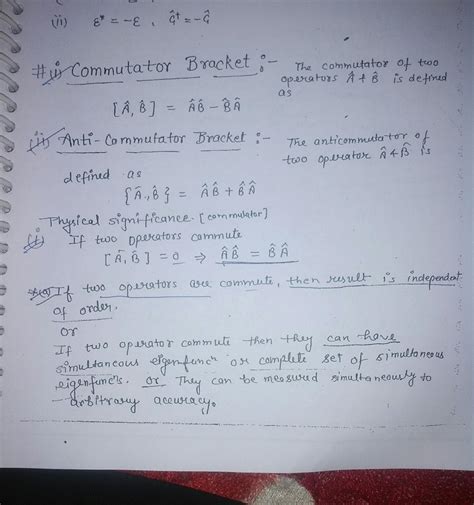 (ii) ε* = -ε , Ĝ† = -Ĝ
# (i) Commutator Bracket :- The commutator of two
operators Â & B̂ is defined
as
[Â, B̂] = ÂB̂ - B̂Â
(ii) Anti-Commutator Bracket :- The anticommutator of
two operator Â & B̂ is
defined as
{Â, B̂} = ÂB̂ + B̂Â
Physical significance. [commutator]
(i) If two operators commute
[Â, B̂] = 0 ⇒ ÂB̂ = B̂Â
If two operators are commute, then result is independent
of order.
or
If two operator commute then they can have
simultaneous eigenfuncⁿ or complete set of simultaneous
eigenfuncⁿs. or They can be measured simultaneously to
arbitrary accuracy.